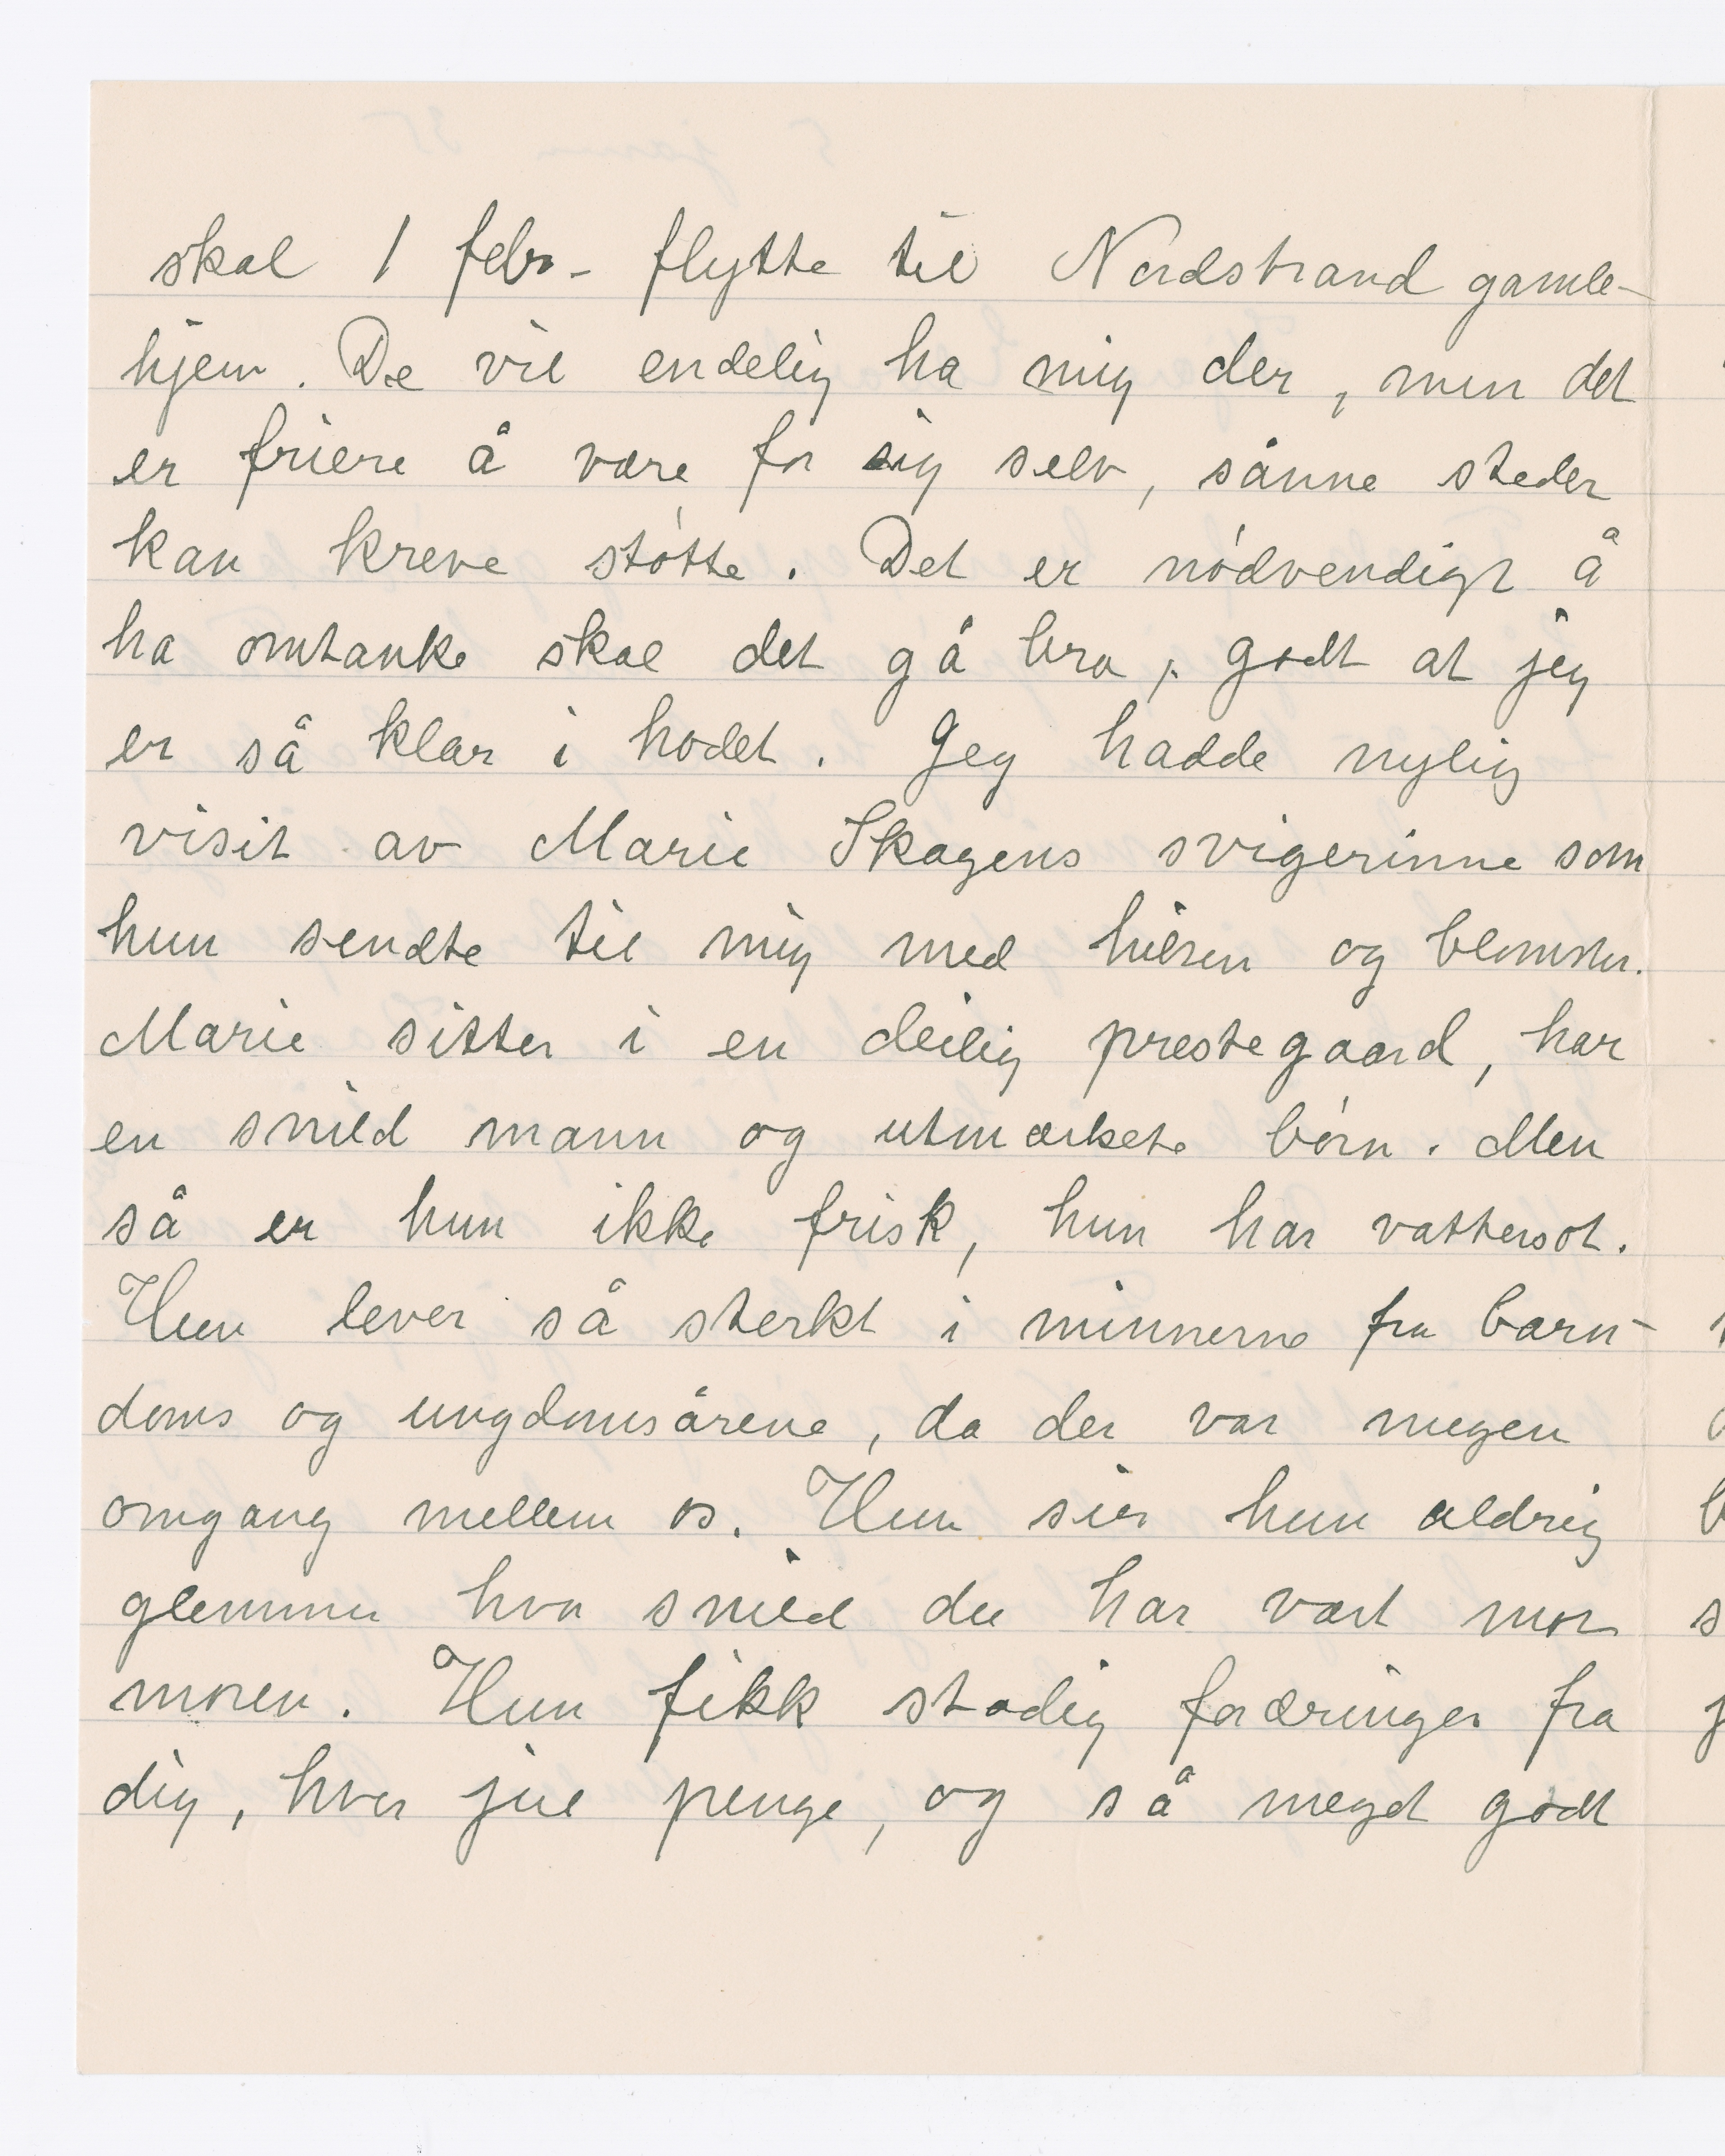 skal 1 febr- flytte til Nordstrand gamle-
hjem. De vil endelig ha mig der, men det
er friere å være for sig selv, sånne steder
kan kreve støtte. Det er nødvendigt å
ha omtanke skal det gå bra, godt at jeg
er så klar i hodet. Jeg hadde nylig
visit av Marie Skagens svigerinne som
hun sendte til mig med hilsen og blomster.
Marie sitter i en deilig prestegaard, har
en snild mann og utmærkete børn. Men
så er hun ikke frisk, hun har vattersot.
Hun lever så sterkt i minnerne fra barn-
doms og ungdomsårene, da der var megen
omgang mellem os. Hun sier hun aldrig
glemmer hva snild du har vært mor
moren. Hun fikk stadig foræringer fra
dig, hver jul penge, og så meget godt